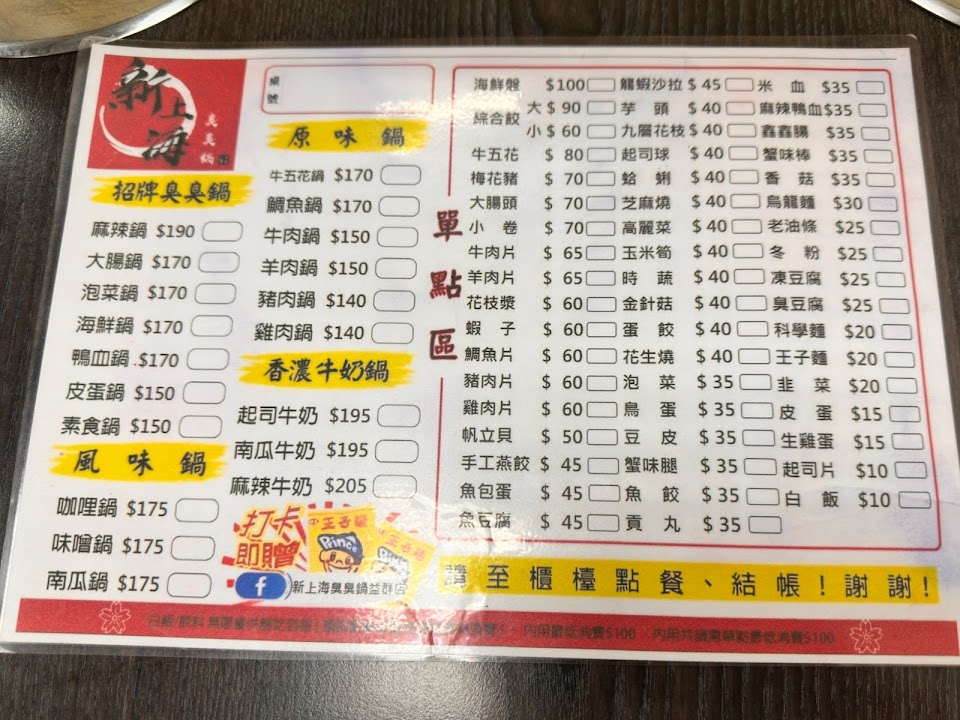 新上海
臭臭鍋
桌號
招牌臭臭鍋
麻辣鍋 $190
大腸鍋 $170
泡菜鍋 $170
海鮮鍋 $170
鴨血鍋 $170
皮蛋鍋 $150
素食鍋 $150
風味鍋
咖哩鍋 $175
味噌鍋 $175
南瓜鍋 $175
原味鍋
牛五花鍋 $170
鯛魚鍋 $170
牛肉鍋 $150
羊肉鍋 $150
豬肉鍋 $140
雞肉鍋 $140
香濃牛奶鍋
起司牛奶 $195
南瓜牛奶 $195
麻辣牛奶 $205
打卡
即贈
Prince
新上海臭臭鍋益群店
單點區
海鮮盤 $100
綜合餃 大 $90
小 $60
牛五花 $ 80
梅花豬 $ 70
大腸頭 $ 70
小卷 $ 70
牛肉片 $ 65
羊肉片 $ 65
花枝漿 $ 60
蝦子 $ 60
鯛魚片 $ 60
豬肉片 $ 60
雞肉片 $ 60
帆立貝 $ 50
手工燕餃 $ 45
魚包蛋 $ 45
魚豆腐 $ 45
龍蝦沙拉 $ 45
芋頭 $ 40
九層花枝 $ 40
起司球 $ 40
蛤蜊 $ 40
芝麻燒 $ 40
高麗菜 $ 40
玉米筍 $ 40
時蔬 $ 40
金針菇 $ 40
蛋餃 $ 40
花生燒 $ 40
泡菜 $ 35
鳥蛋 $ 35
豆皮 $ 35
蟹味腿 $ 35
魚餃 $ 35
貢丸 $ 35
米血 $35
麻辣鴨血 $35
鑫鑫腸 $35
蟹味棒 $35
香菇 $35
烏龍麵 $30
老油條 $25
冬粉 $25
凍豆腐 $25
臭豆腐 $25
科學麵 $20
王子麵 $20
韭菜 $20
皮蛋 $15
生雞蛋 $15
起司片 $10
白飯 $10
請至櫃檯點餐、結帳!謝謝!
內用最低消費$100、內用共鍋需單點最低消費$100